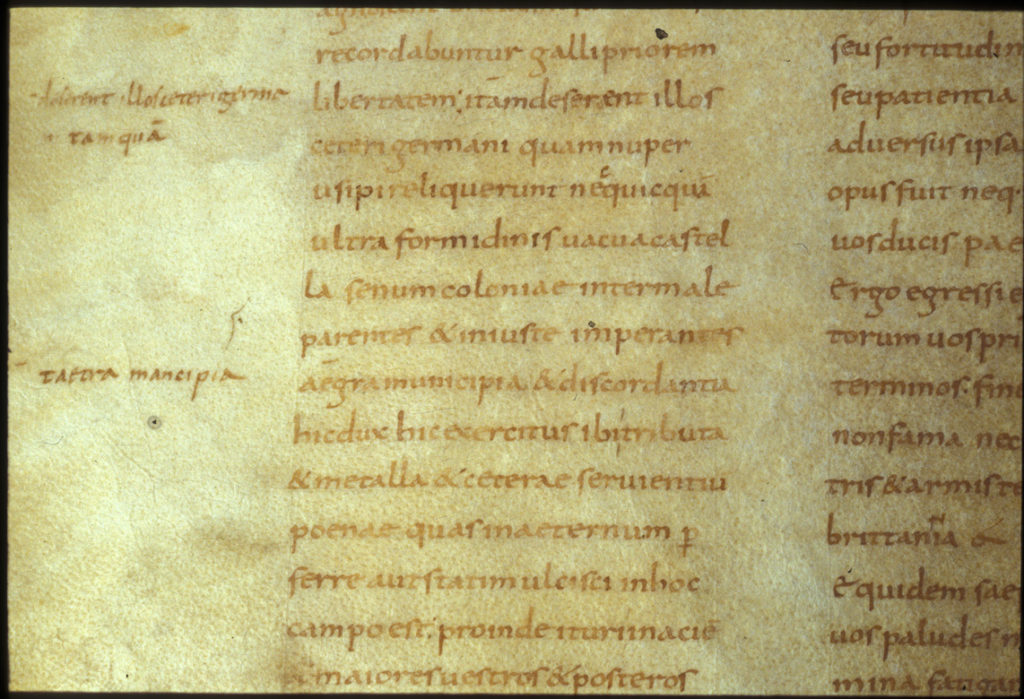 recordabuntur galli priorem
libertatem; itam deserent illos
ceteri germani quam nuper
usipi reliquerunt neq; quicquā
ultra formidinis uacua castel
la senum coloniae inter male
parentes & iniuste imperantes
aegra municipia & discordantia
hic dux hic exercitus ibi tributa
& metalla & ceterae seruientiū
poenae quas in aeternum ꝑ
ferre aut statim ulcisci in hoc
campo est. proinde ituri in aciē
maiores uestros & posteros
deserent illos ceteri germa
tamquā
taetra mancipia
seu fortitudin
seu patientia
aduersus ipsa
opus fuit neq.
uos ducis pae
Ergo egressi e
torum uos pri
terminos: fine
non fama nec
tris & armis te
brittania &
Equidem sae
uos paludes m
mina fatigar